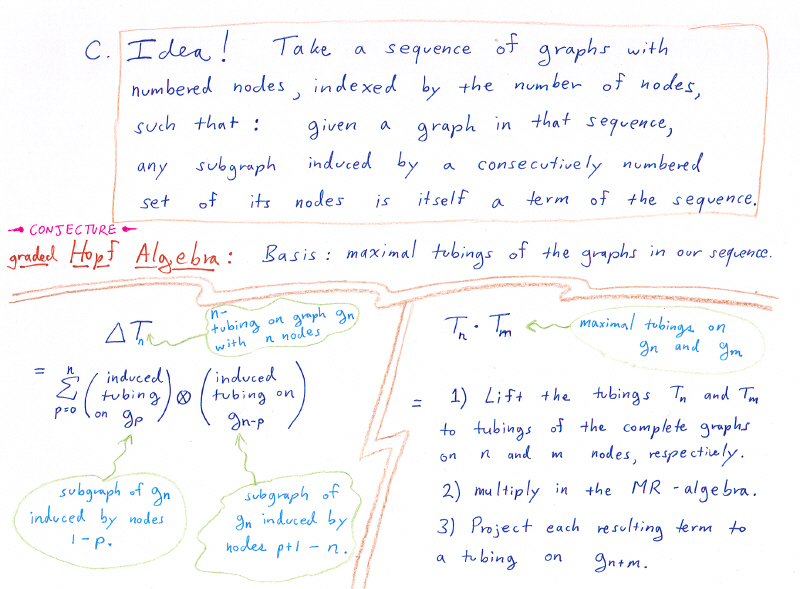 C. Idea! Take a sequence of graphs with
numbered nodes, indexed by the number of nodes,
such that: given a graph in that sequence,
any subgraph induced by a consecutively numbered
set of its nodes is itself a term of the sequence.
CONJECTURE
graded Hopf Algebra: Basis: maximal tubings of the graphs in our sequence.
Δ Tn
n-
tubing on graph gn
with n nodes
= n Σ p=0 (induced tubing on gp) ⊗ (induced tubing on gn-p)
subgraph of gn
induced by nodes
1-p.
subgraph of
gn induced by
nodes p+1 - n.
Tn · Tm
maximal tubings on
gn and gm
= 1) Lift the tubings Tn and Tm
to tubings of the complete graphs
on n and m nodes, respectively.
2) multiply in the MR-algebra.
3) Project each resulting term to
a tubing on gn+m.